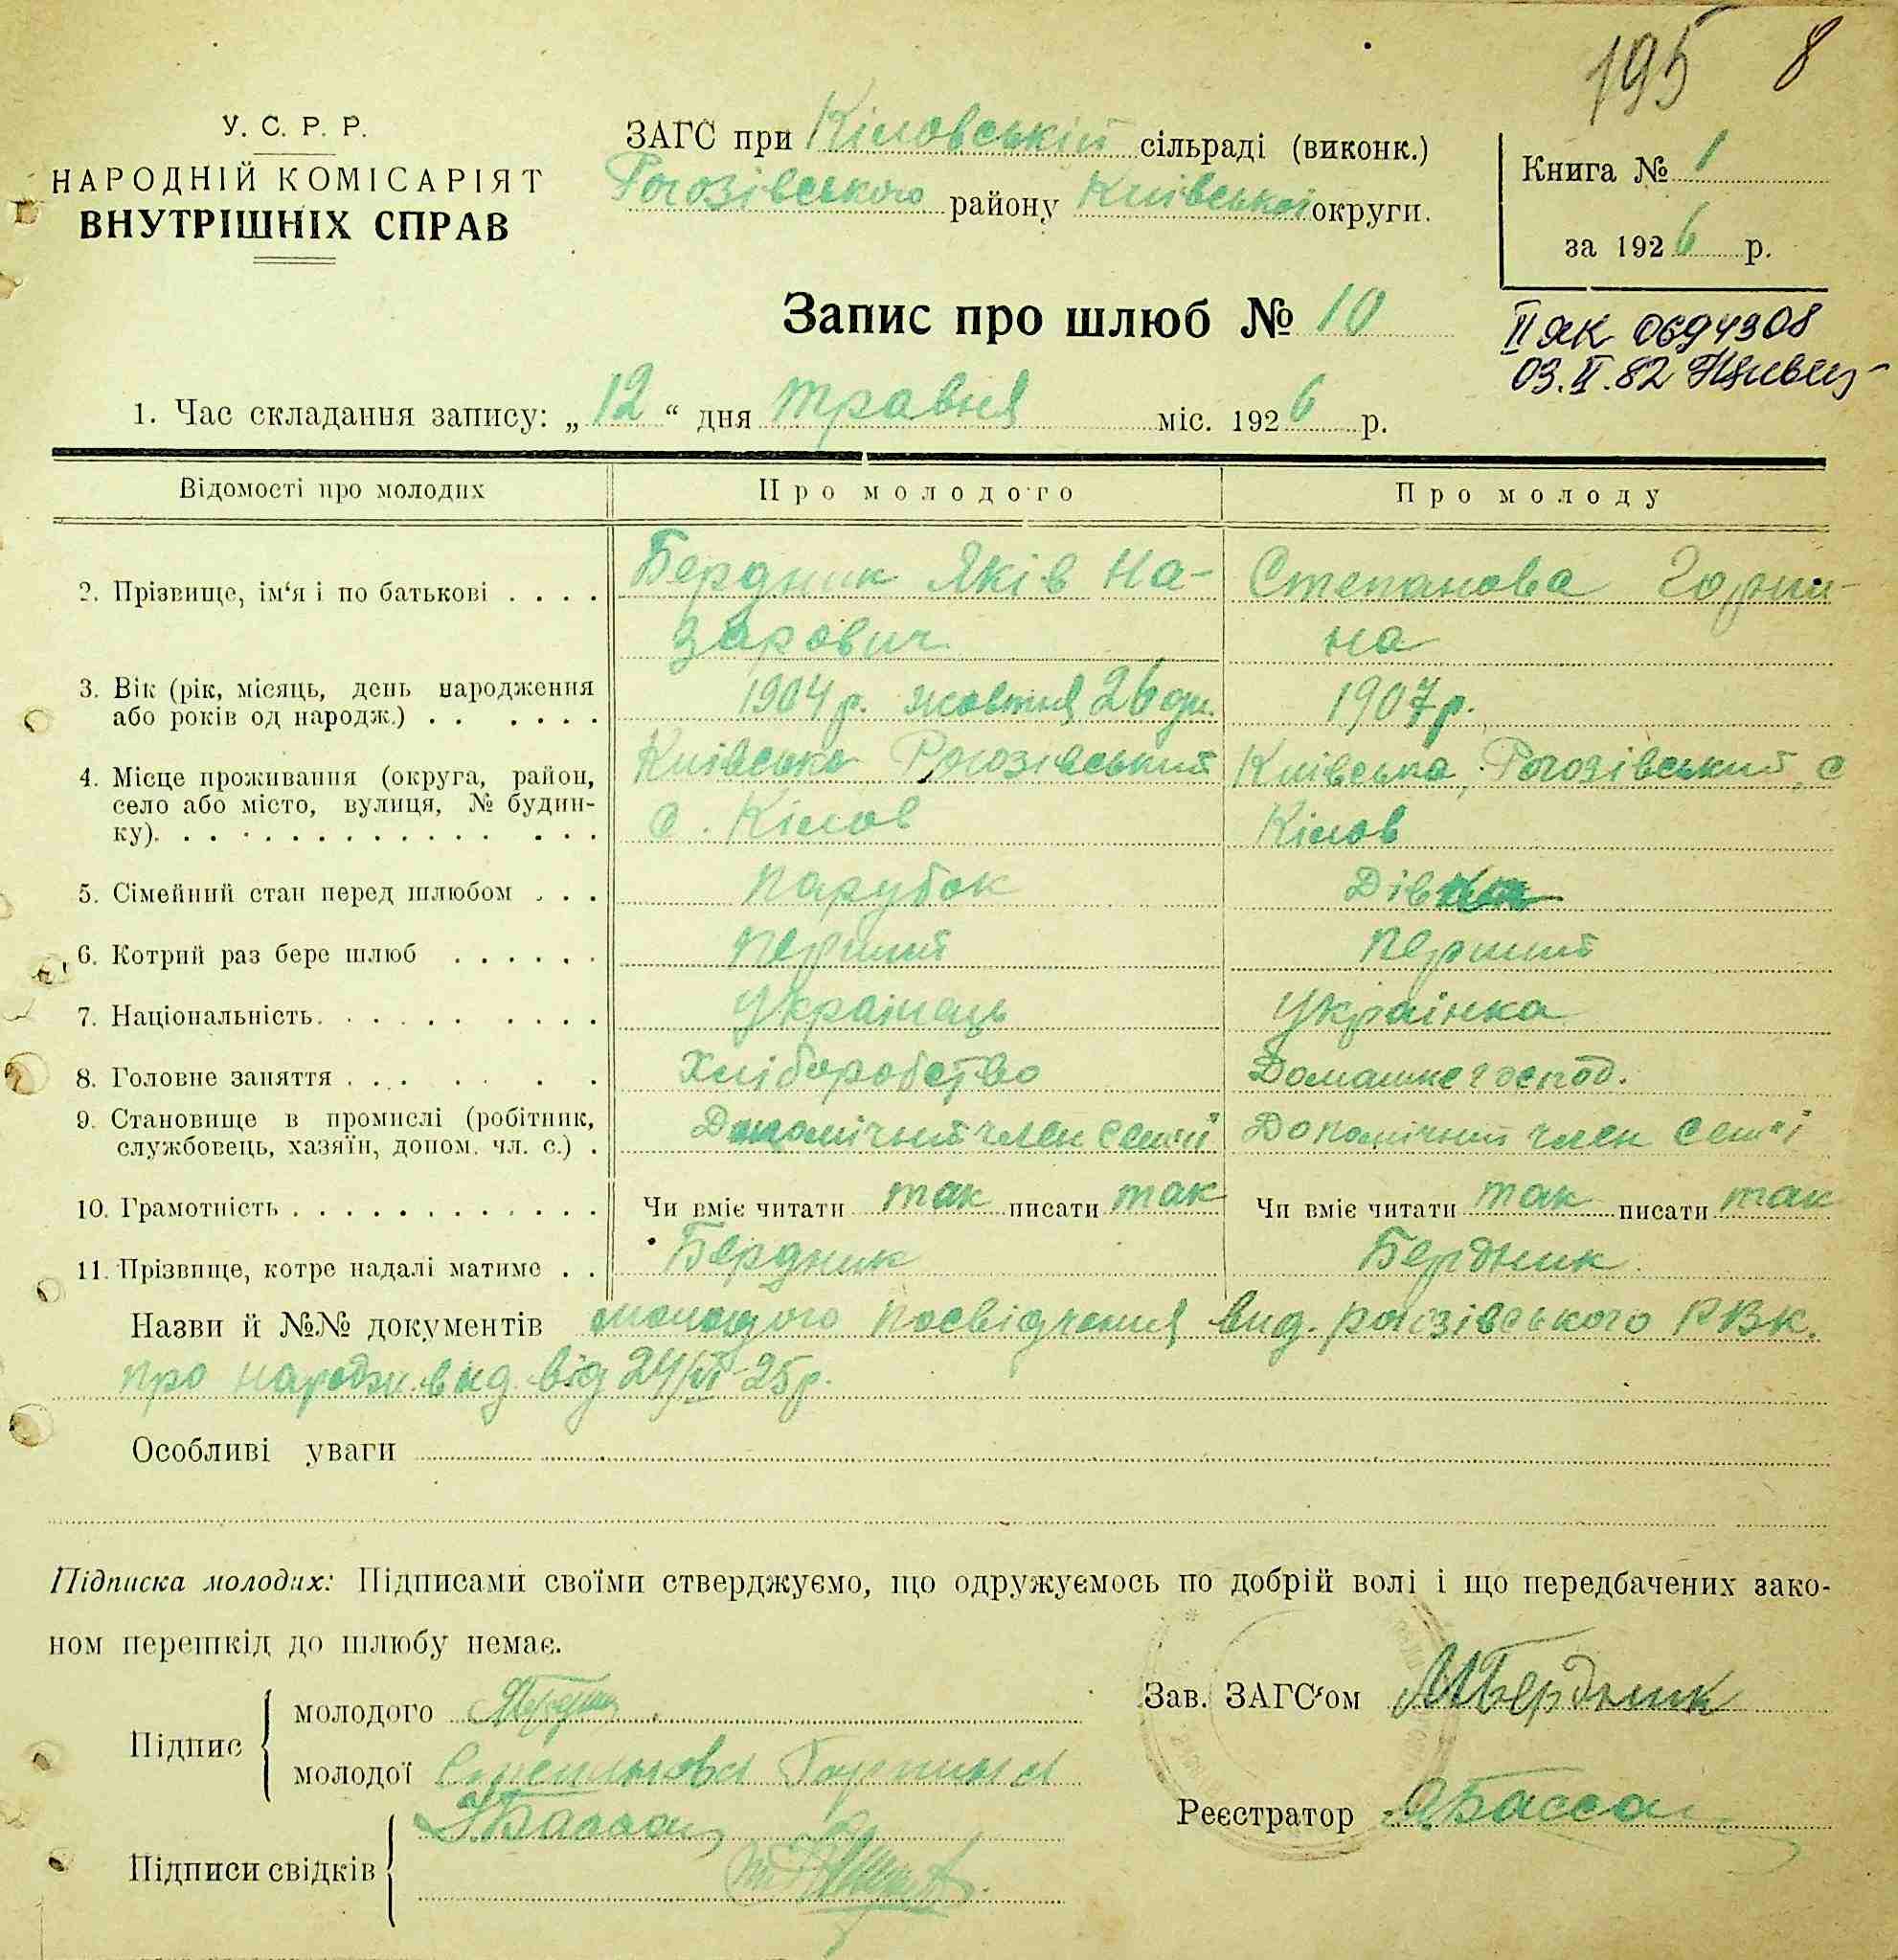 195 8
У. С. Р. Р.
НАРОДНІЙ КОМІСАРІЯТ
ВНУТРІШНІХ СПРАВ
ЗАГС при Кіловській сільраді (виконк.)
Рогозівського району Київської округи.
Книга № 1
за 1926 р.
Запис про шлюб № 10
II ЯК 0694308
03.II.82
1. Час складання запису: „12“ дня травня міс. 1926 р.
Відомості про молодих Про молодого Про молоду
2. Прізвище, ім‘я і по батькові . . . . Бердник Яків На- Степанова Горпи-
зарович на
3. Вік (рік, місяць, день народження 1904 р. жовтня 26 дн. 1907 р.
або років од народж.) . . . . . .
4. Місце проживання (округа, район, Київська Рогозівський Київська, Рогозівський, с
село або місто, вулиця, № будин- с. Кілов Кілов
ку). . . . . . . . . . . . . . .
5. Сімейний стан перед шлюбом . . . парубок Дівка
6. Котрий раз бере шлюб . . . . . . перший перший
7. Національність. . . . . . . . . . українець Українка
8. Головне заняття . . . . . . . Хліборобство Домашнє господ.
9. Становище в промислі (робітник, Допомічний член семьї Допомічний член семьї
службовець, хазяїн, допом. чл. с.) .
10. Грамотність . . . . . . . . . . . . Чи вміє читати так писати так Чи вміє читати так писати так
11. Прізвище, котре надалі матиме . . Бердник Бердник
Назви й №№ документів молодого посвідчення вид. рогозівського РВК.
про народж. вид. від 24/VI-25 р.
Особливі уваги
Підписка молодих: Підписами своїми стверджуємо, що одружуємось по добрій волі і що передбачених зако-
ном перешкід до шлюбу немає.
Підпис
молодого
молодої Степанова Горпина
Зав. ЗАГС‘ом Бердник
Реєстратор Басса
Підписи свідків